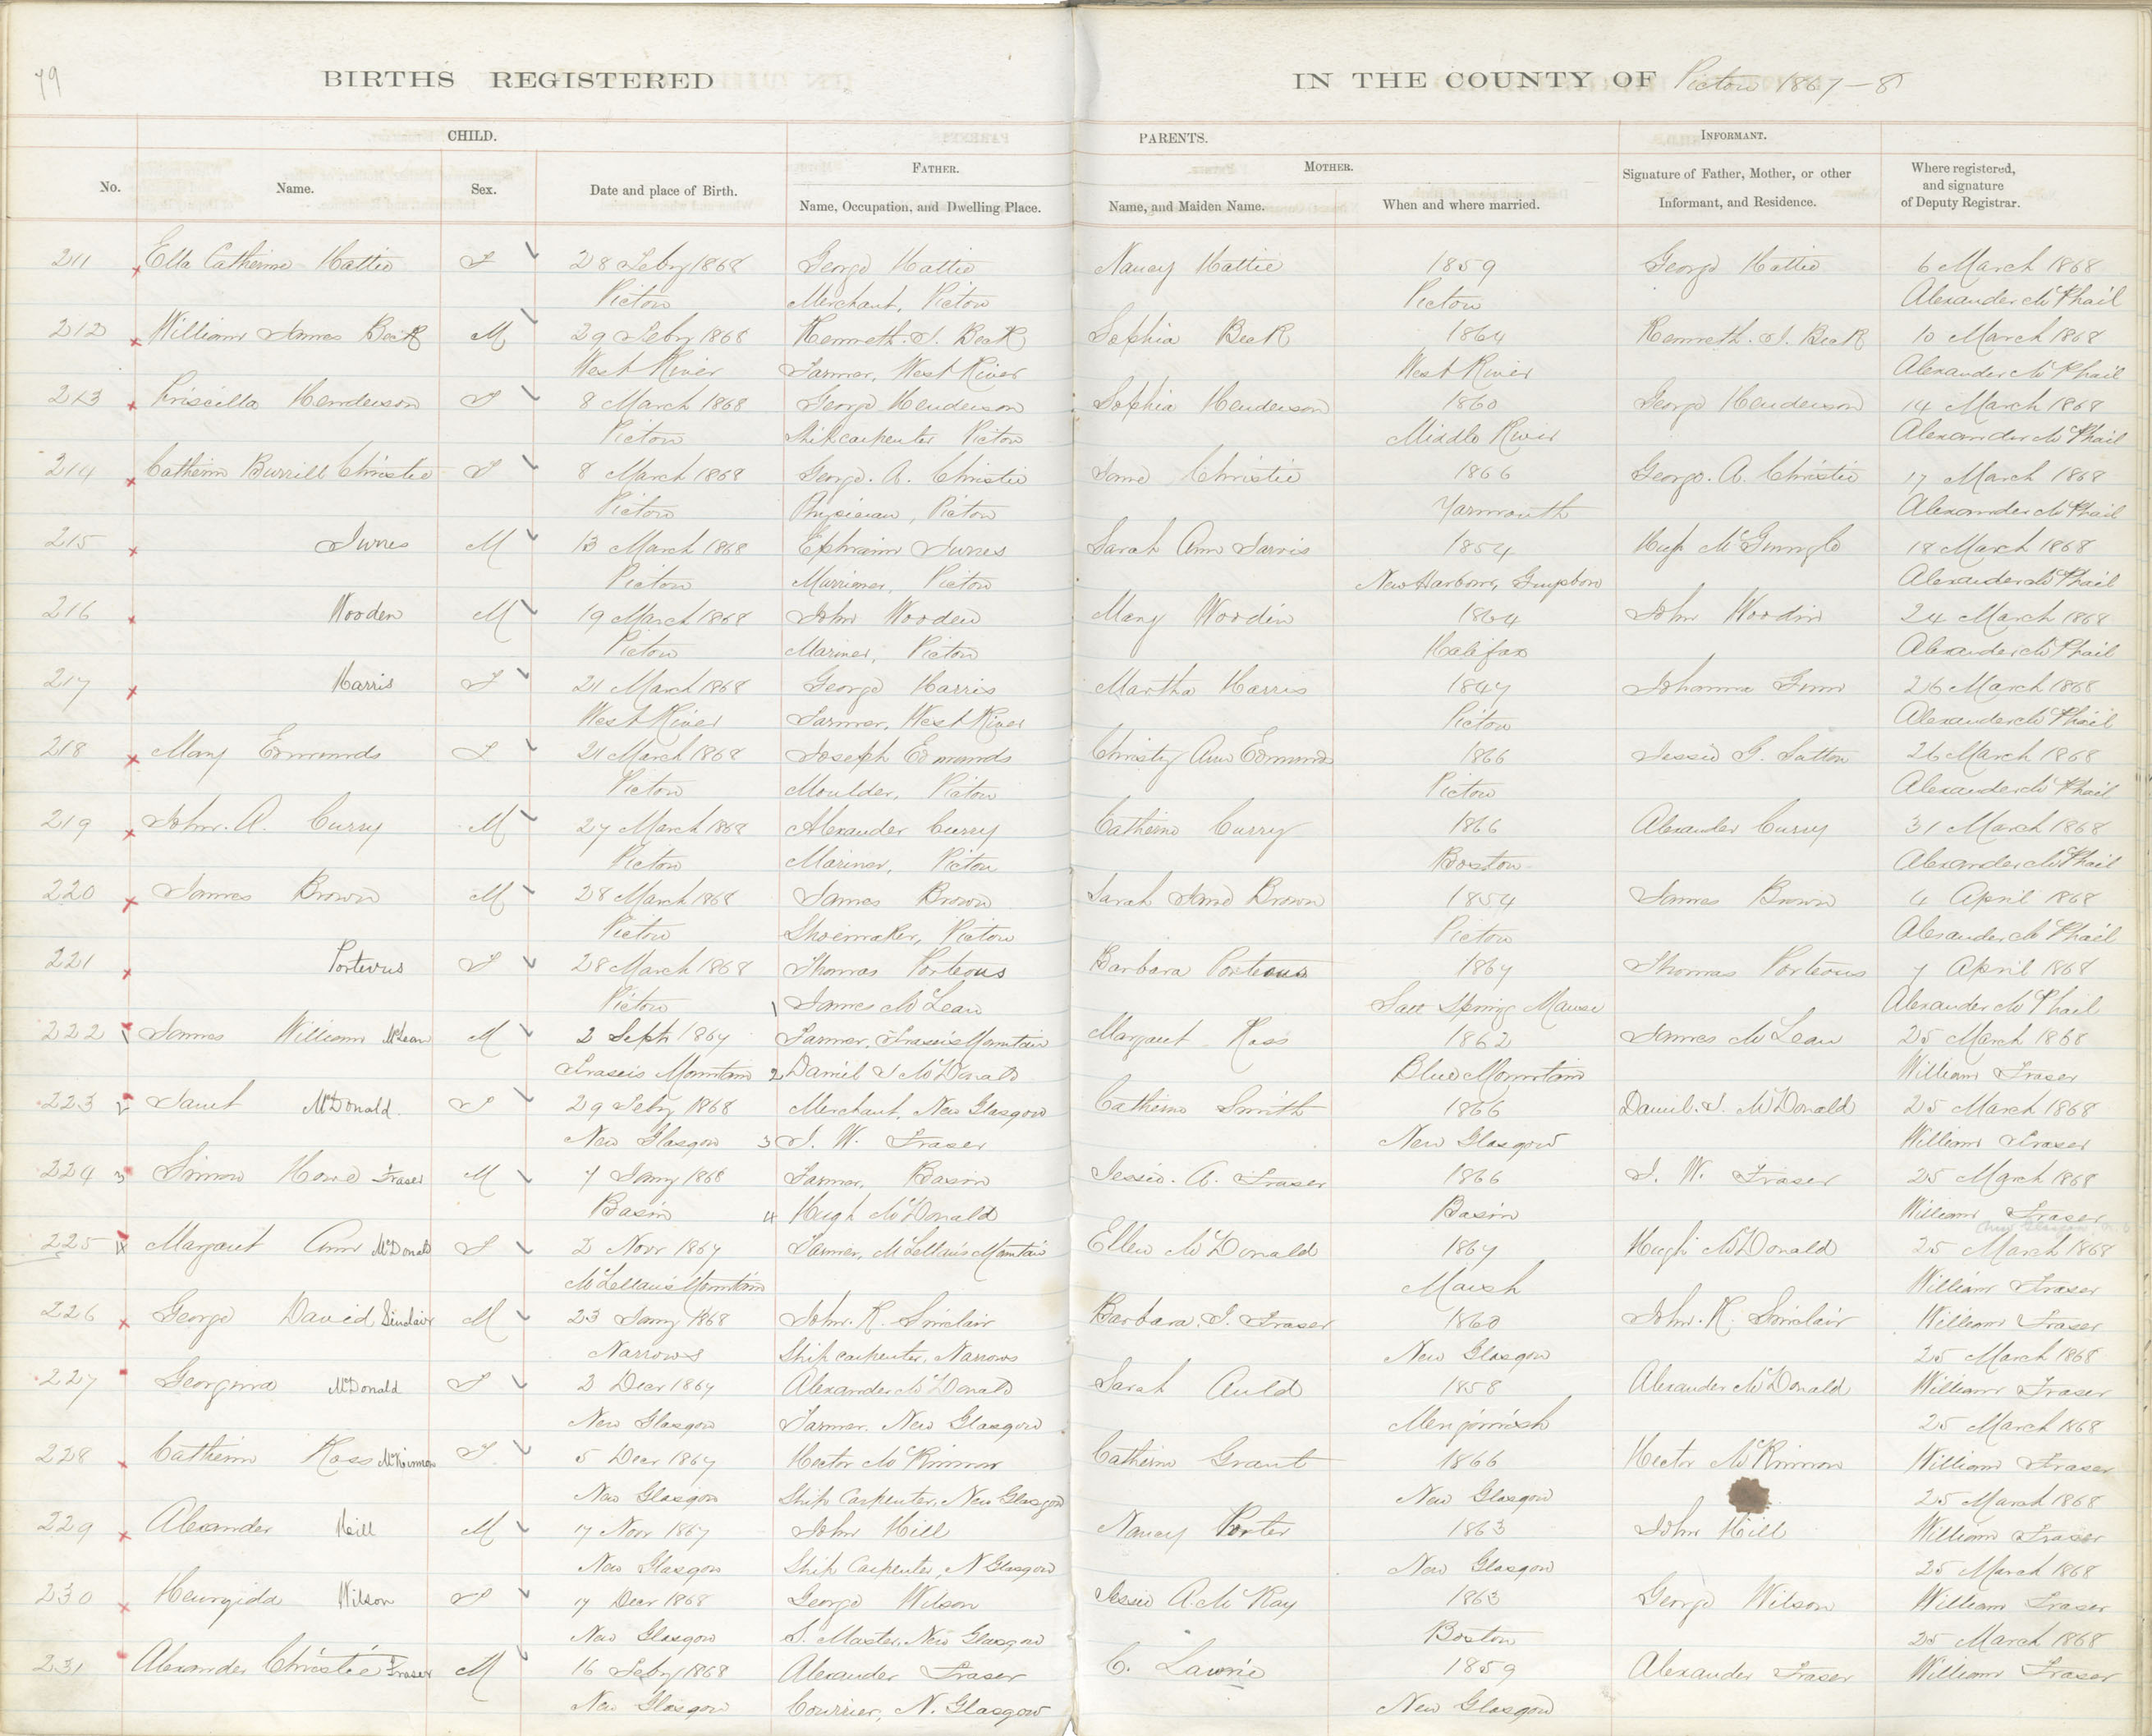 79
BIRTHS REGISTERED IN THE COUNTY OF Pictou 1867-8
CHILD. PARENTS. INFORMANT.
No. Name. Sex. Date and place of Birth. FATHER. Name, Occupation, and Dwelling Place. MOTHER. Name, and Maiden Name. When and where married. Signature of Father, Mother, or other Informant, and Residence. Where registered, and signature of Deputy Registrar.
211 Ella Catherine Hattie F 28 Feby 1868 George Hattie Nancy Hattie 1859 George Hattie 6 March 1868
Pictou Merchant, Pictou Pictou Alexander McPhail
212 William James Beck M 29 Feby 1868 Kenneth. J. Beck Sophia Beck 1864 Kenneth. J. Beck 10 March 1868
West River Farmer, West River West River Alexander McPhail
213 Priscilla Henderson F 8 March 1868 George Henderson Sophia Henderson 1860 George Henderson 14 March 1868
Pictou Shipcarpenter Pictou Middle River Alexander McPhail
214 Catherine Burrill Christie F 8 March 1868 George. A. Christie Jane Christie 1866 George. A. Christie 17 March 1868
Pictou Physician, Pictou Yarmouth Alexander McPhail
215 M 13 March 1868 Ephraim Sarah Ann Jarvis 1854 18 March 1868
Pictou Marriner, Pictou New Harbour, Alexander McPhail
216 Wooden M 19 March 1868 John Wooden Mary Woodin 1864 John Woodin 24 March 1868
Pictou Mariner, Pictou Halifax Alexander McPhail
217 Harris F 21 March 1868 George Harris Martha Harris 1847 Johanna Gunn 26 March 1868
West River Farmer, West River Pictou Alexander McPhail
218 Mary Edmunds F 21 March 1868 Joseph Edmunds Christy Ann Edmunds 1866 Jessie G. Sutton 26 March 1868
Pictou Moulder, Pictou Pictou Alexander McPhail
219 John. A. Curry M 27 March 1868 Alexander Curry Catherine Curry 1866 Alexander Curry 31 March 1868
Pictou Mariner, Pictou Boston Alexander McPhail
220 James Brown M 28 March 1868 James Brown Sarah Jane Brown 1854 James Brown 4 April 1868
Pictou Shoemaker, Pictou Pictou Alexander McPhail
221 Porteous F 28 March 1868 Thomas Porteous Barbara Porteous 1867 Thomas Porteous 7 April 1868
Pictou 1 James McLean Salt Springs Manse Alexander McPhail
222 1 James William McLean M 2 Sept 1867 Farmer, Frasers Mountain Margaret Ross 1862 James McLean 25 March 1868
Frasers Mountain 2 Daniel J McDonald Blue Mountain William Fraser
223 2 Janet McDonald. F 29 Feby 1868 Merchant, New Glasgow Catherine Smith 1866 Daniel. J. McDonald 25 March 1868
New Glasgow 3 J. W. Fraser New Glasgow William Fraser
224 3 Simon Howe Fraser M 7 Jany 1868 Farmer, Basin Jessie. A. Fraser 1866 J. W. Fraser 25 March 1868
Basin 4 Hugh McDonald Basin William Fraser
225 4 Margaret Ann McDonald F 2 Novr 1867 Farmer, McLellan's Mountain Ellen McDonald 1867 Hugh McDonald 25 March 1868
McLellan's Mountain Marsh William Fraser
226 George David Sinclair M 23 Jany 1868 John. R. Sinclair Barbara. J. Fraser 1860 John. R. Sinclair William Fraser
Narrows Ship carpenter, Narrows New Glasgow 25 March 1868
227 Georgina McDonald F 2 Decr 1867 Alexander McDonald Sarah Auld 1858 Alexander McDonald William Fraser
New Glasgow Farmer. New Glasgow Merigomish 25 March 1868
228 Catherine Ross McKinnon F 5 Decr 1867 Hector McKinnon Catherine Grant 1866 Hector McKinnon William Fraser
New Glasgow Ship Carpenter, New Glasgow New Glasgow 25 March 1868
229 Alexander Hill M 17 Novr 1867 John Hill Nancy Porter 1863 John Hill William Fraser
New Glasgow Ship Carpenter, N Glasgow New Glasgow 25 March 1868
230 Wilson F 17 Decr 1868 George Wilson Jessie A. McKay 1863 George Wilson William Fraser
New Glasgow S. Master, New Glasgow Boston 25 March 1868
231 Alexander Christie Fraser M 16 Feby 1868 Alexander Fraser C. Lawrie 1859 Alexander Fraser William Fraser
New Glasgow Courrier, N. Glasgow New Glasgow